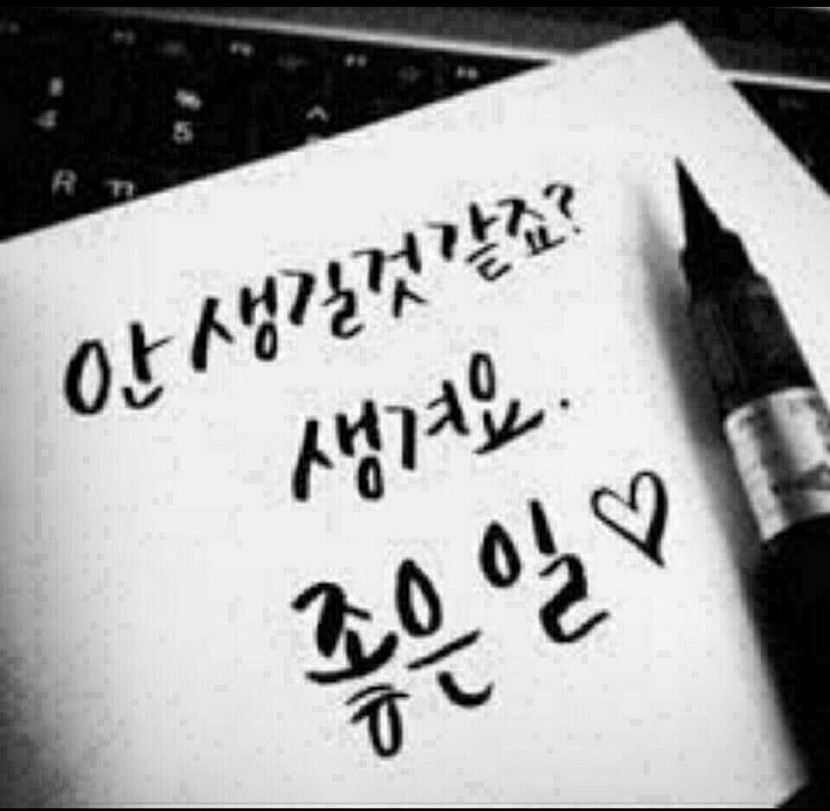 4 % 5 ^
R ㄲ
안 생길것 같죠?
생겨요.
좋은 일♡